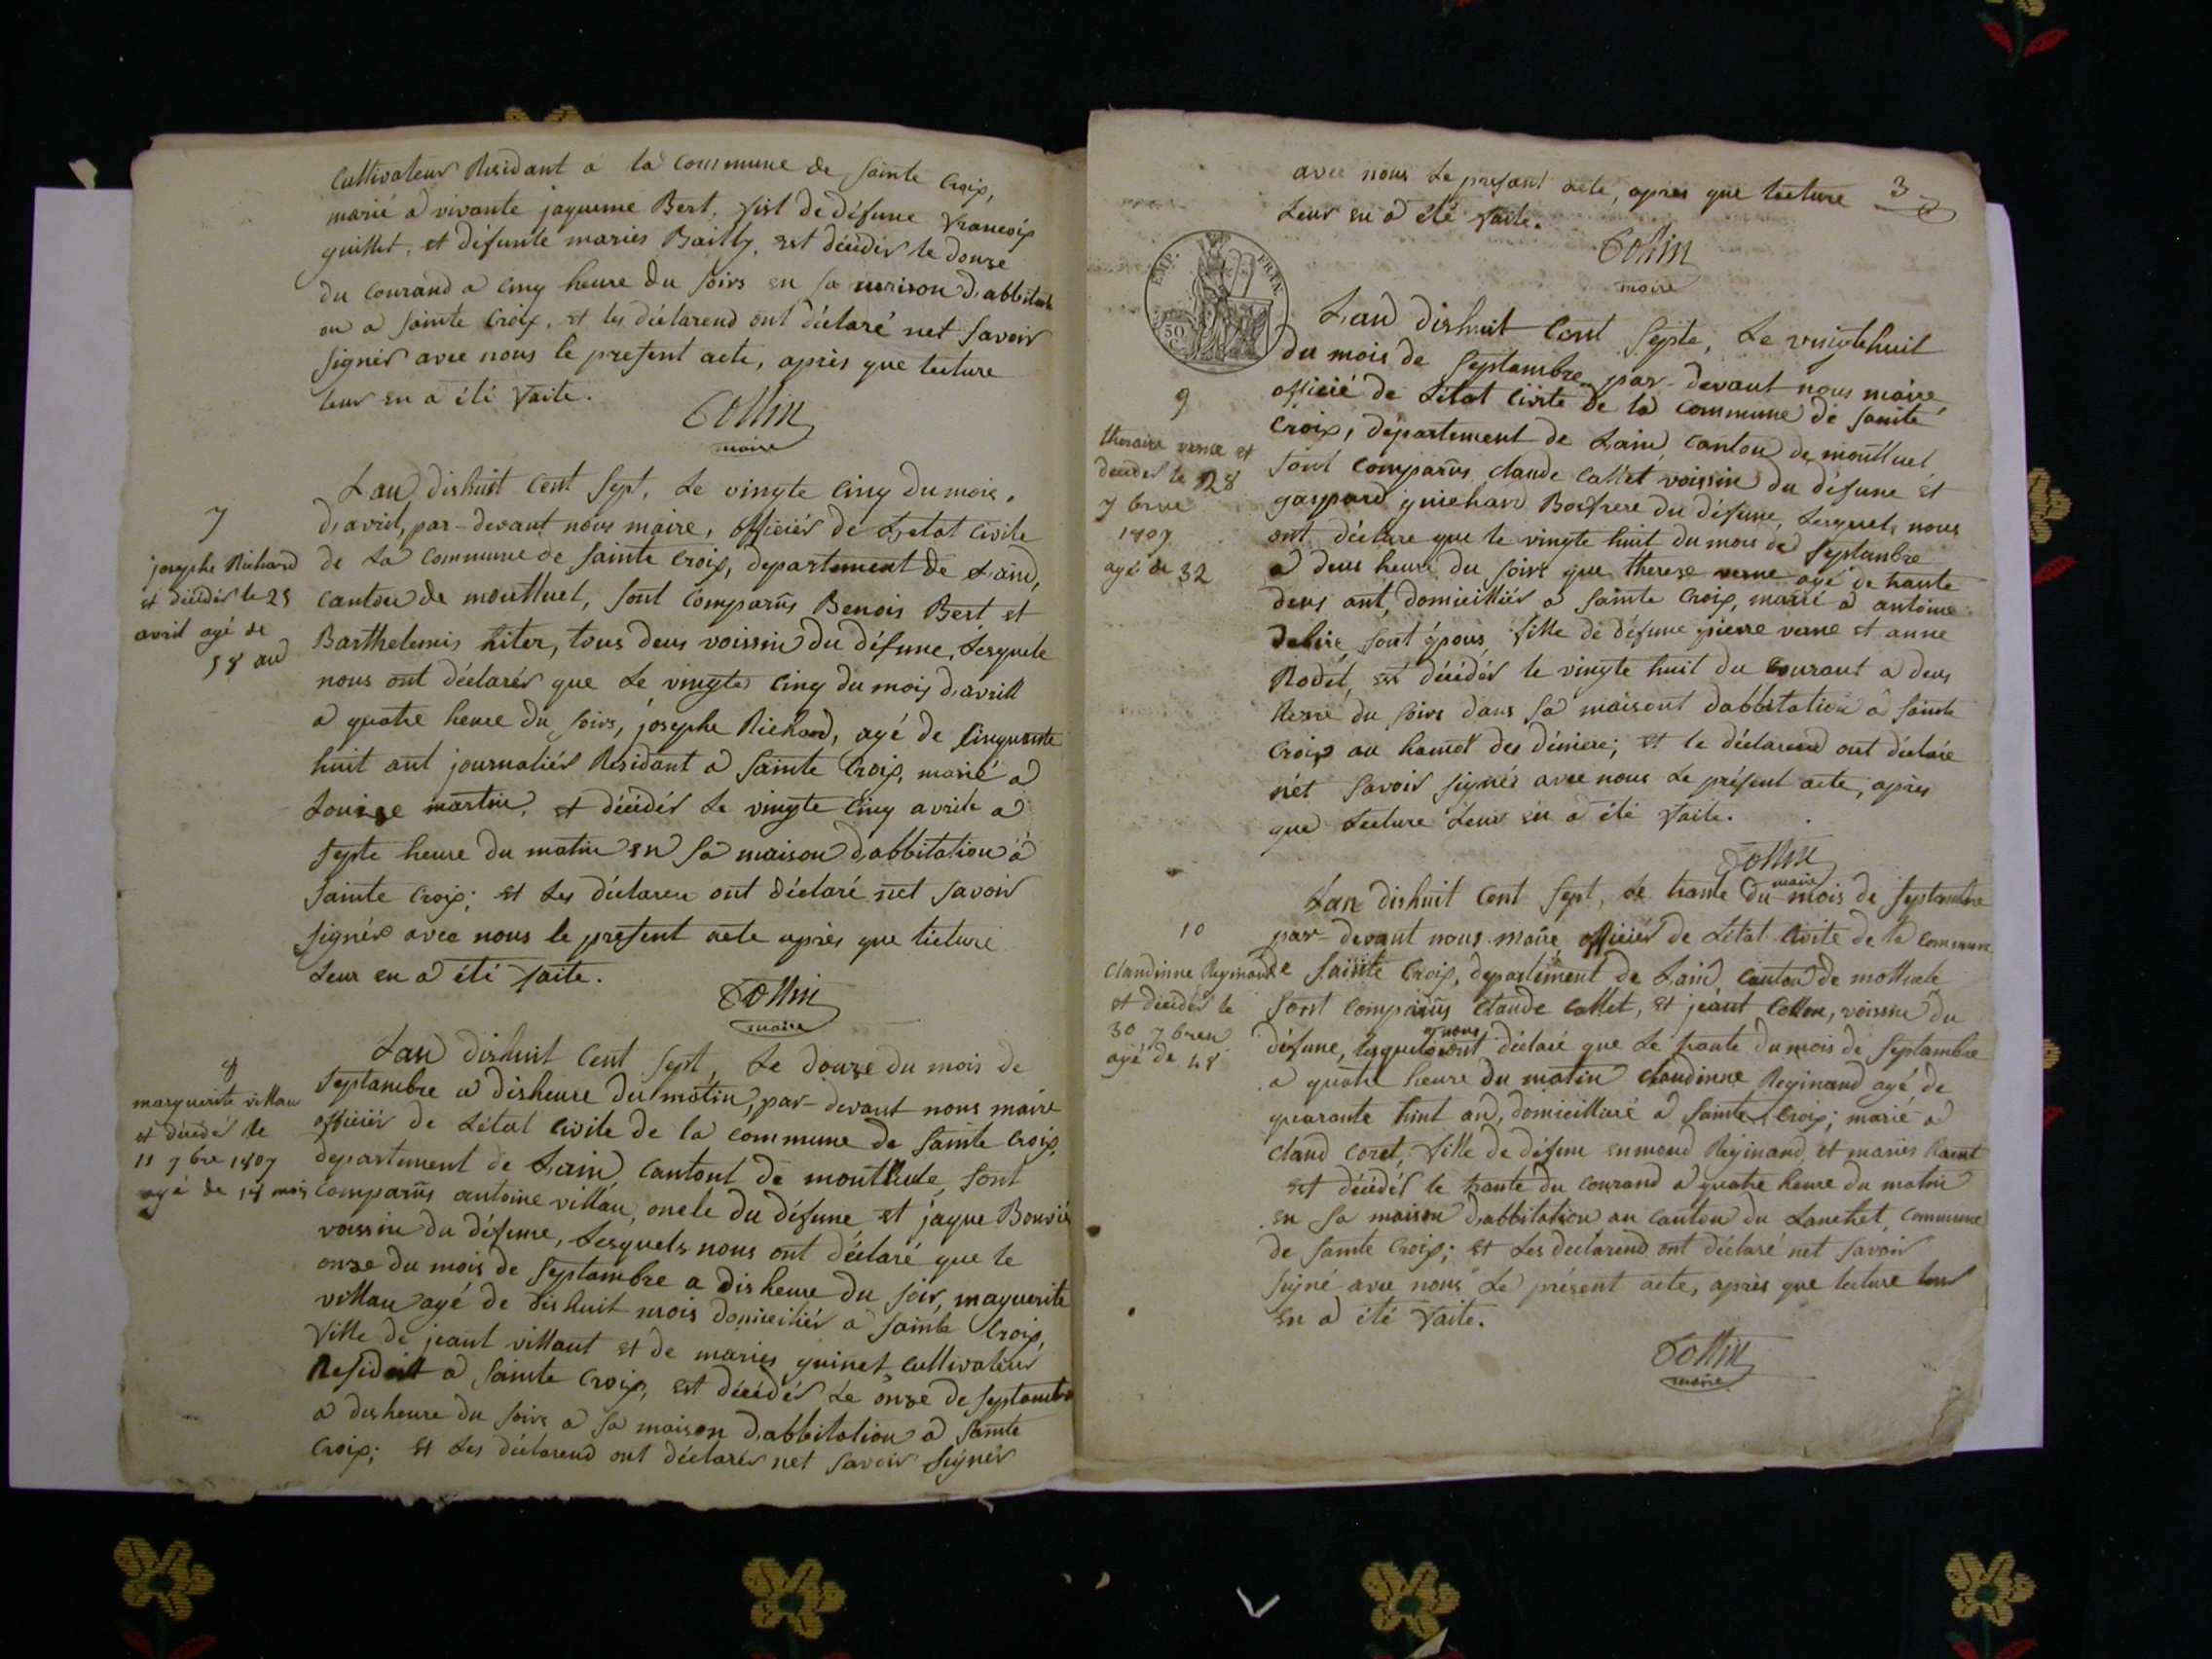 Cultivateur Residant a la Commune de sainte Croix,
marié a vivante jaqueme Bert, fist de défune Francois
guillet, et défunte maries Bailly, est décéder le douze
du Courand a cinq heure du soirs en sa maison d'abbitati
on a sainte Croix, et les déclarend ont déclaré net savoir
signér avec nous le present acte, aprés que lecture
leur en a été faite.
Collin
maire
7
josephe Richard
et décédér le 25
avril agé de
58 and
Lau dishuit Cent sept, Le vingte cinq du mois,
d'avril, par-devant nous maire, officiér de Letat Civile
de La Commune de sainte Croix, departement de Laind,
Canton de montluel, sont Comparûs Benois Bert et
Barthelemis hiter, tous deus voissin du défune, Lesquele
nous ont déclarér que Le vingte cinq du mois d'avrill
a quatre heure du soirs, josephe Richard, agé de Cinquante
huit ant journaliér Residant a sainte Croix, marié a
Louise martin, et décédér Le vingte cinq avrile a
septe heure du matin en sa maison d'abbitation a
sainte Croix; et Les déclaren ont déclaré net savoir
signér avec nous le present acte aprés que lecture
Leur en a été faite.
Collin
maire
8
marguerite villau
et décédér le
11 7bre 1807
agé de 18 mois
Lau dishuit Cent sept, Le douze du mois de
septambre a disheure du matin, par-devant nous maire
officiér de Létat Civile de la Commune de sainte Croix,
departement de Lain, Cantont de montluele, sont
Comparûs antoine villau, oncle du défune et jaque Bouviér
voissin du défune, Lesquels nous ont déclaré que le
onze du mois de septambre a disheure du soir, maguerite
villau agé de dishuit mois domiciliér a sainte Croix,
fille de jeant villaut et de maries guinet Cultivateur
Residant a sainte Croix, est décédér Le onze de septambre
a disheure du soirs a sa maison d'abbitation a sainte
Croix; et Les déclarend ont déclarér net savoir signér
avec nous Le presant acte, apres que lecture
Leur en a été faite.
3
Collin
maire
EMP. FRAN.
50
C
9
theraise verne et
décédér le 28
7 brue
1807
agé de 32
Laud dishuit Cent septe, Le vingtehuit
du mois de septambre par-devant nous maire
officié de Létat Civile de la Commune de sainte
Croix, département de Lain, Canton de montluel
sont Comparûs Claude Callet voissin du défune et
gaspard guichard Boifrere du défune, Lesquels nous
ont déclare que le vingte huit du mois de septambre
a deus heure du soirs que therese verne agé de trante
deus ant, domicilliér a sainte Croix, marié a antoine
sont épous, fille de défune pierre verne et anne
Rodet, est décédér le vingte huit du Courant a deus
heure du soirs dans sa maisont d'abbitation a sainte
Croix au hamot des déniere; et le déclarend ont déclaré
nét savoir signér avec nous Le présent acte, aprés
que Lecture Leur en a été faite.
Collin
maire
10
Claudinne Reginand
et décédér le
30 7 bren
agé de 48
Lan dishuit Cent sept, Le trante du mois de septambre
par-devant nous maire officiér de Létat Civile de la Commune
de sainte Croix, departément de Lain, Canton de molluele
sont Comparûs Claude Callet, et jeant Collon, voissin du
défune, lesquels nous ont déclaré que Le trante du mois de septambre
a quatre heure du matin Claudinne Reginand agé de
quarante huit and, domicilliaré a sainte Croix; marié a
Claud Coret, fille de défune enmond Reginand, et maries
est décédér le trante du Courand a quatre heure du matin
en sa maison d'abbitation au Canton du Lanchet, Commune
de sainte Croix; et Les declarend ont déclaré net savoir
signé avec nous Le présent acte, aprés que lecture leur
en a été faite.
Collin
maire